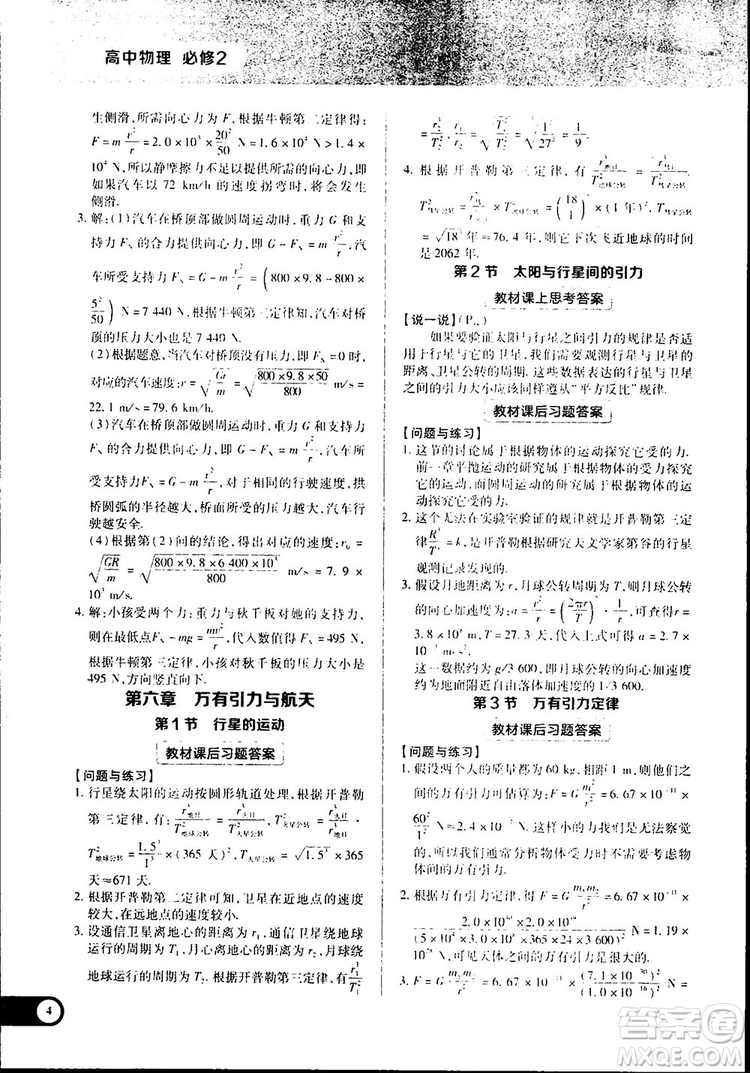 高中物理 必修2
生侧滑,所需向心力为 F,根据牛顿第二定律得:
F=m v²/r =2.0×10³×20²/50 N=1.6×10⁴ N>1.4×
10⁴ N,所以静摩擦力不足以提供向心力,即
如果汽车以 72 km/h 的速度拐弯时,将会
侧滑.
3. 解:(1)汽车在桥顶部做圆周运动时,重力 G 和支
持力 F 的合力提供向心力,即 G-F=m v²/r,汽
车所受支持力 F=G-m v²/r =(800×9.8-800×
5²/50) N=7 440 N.根据牛顿第三定律,汽车对桥
顶的压力大小也是 7 440 N.
(2)根据题意,当汽车对桥顶没有压力时,即 F=0,对
应的汽车速度:v=√(Gr/m)=√(800×9.8×50/800) m/s=
22.1 m/s=79.6 km/h.
(3)汽车在桥顶部做圆周运动时,重力 G 和支持力
F 的合力提供向心力,即 G-F=m v²/r,汽车所受
支持力 F=G-m v²/r,对于相同的行驶速度,拱
桥圆弧的半径越大,桥面所受的压力越大,汽车行
驶越安全.
(4)根据第(2)问的结论,得出对应的速度:v₀
=√(GR/m)=√(800×9.8×6 400×10³/800) m/s=7.9×
10³ m/s.
4. 解:小孩受两个力:重力与秋千板对她的支持力,
在最低点 F-mg=mv²/r,代入数据得 F=495 N,
根据牛顿第三定律,小孩对秋千板的压力大小是
495 N,方向竖直向下.
第六章 万有引力与航天
第1节 行星的运动
教材课后习题答案
【问题与练习】
1. 行星绕太阳的运动按圆形轨道处理,根据开普勒
第三定律有:r³地日/T²地球公转=r³火日/T²火星公转,T²火星公转=r³火日/r³地日·
T²地球公转=1.5³/1³×(365 天)²,T火星公转=√1.5³×365
天≈671 天.
2. 根据开普勒第二定律可知,卫星在近地点的速度
较大,在远地点的速度较小.
3. 设通信卫星离地心的距离 r₁,通信卫星绕地球
运行的周期为 T₁,月心离地心的距离 r₂,月球绕
地球运行的周期为 T₂,根据开普勒第三定律有 r₁³/T₁²
=r₂³/T₂²,r₁/r₂=³√(T₁²/T₂²)=³√(1²/27²)=1/9.
4. 根据开普勒第三定律,有
T²哈星公转=·T²地球公转=(18/1)³×(1 年)²,T哈星公转
=√18³ 年≈76.4 年,则它下次飞近地球的时间
是 2062 年.
第2节 太阳与行星间的引力
教材课上思考答案
【说一说】
如果要验证太阳与行星之间引力的规律是否适
用于行星与它的卫星,我们需要观测行星与卫星的
距离、卫星公转的周期,这些数据表达的行星与卫星
之间的引力大小应该同样遵从“平方反比”规律.
教材课后习题答案
【问题与练习】
1. 这节的讨论属于根据物体的运动探究它受的力.
前一章平抛运动的研究属于根据物体的受力探究
它的运动,而圆周运动的研究属于根据物体的运
动探究它受的力.
2. 这个无法在实验室验证的规律就是开普勒第三定
律 R³/T²=k,是开普勒根据研究天文学家第谷的行星
观测记录发现的.
3. 假设月地距离为 r,月球公转周期为 T,月球公转
的向心加速度为:a=v²/r=(2πr/T)²/r,代入已知量 r=
3.8×10⁸ m,T=27.3 天,代入上式可得 a=2.7×
10⁻³ m/s².
这一数据约为 g/3 600,即月球公转的向心加速度
近似为地面附近自由落体加速度的 1/3 600.
第3节 万有引力定律
教材课后习题答案
【问题与练习】
1. 假设两个人的质量都为 60 kg,相距 1 m,则它们之间
的万有引力可估算:F=G m²/r²=6.67×10⁻¹¹×
60²/1² N≈2.4×10⁻⁷ N,这样小的力我们是无法察觉
的,所以我们通常分析物体受力时不需要考虑物
体间的万有引力.
2. 根据万有引力定律 F=G m₁m₂/r²=6.67×10⁻¹¹×
2.0×10⁴⁰×2.0×10³⁹/(5×10⁴×3.0×10⁸×365×24×3 600)² N=1.19×
10²⁶ N,可见天体之间的万有引力是很大的.
3. F=G m₁m₂/r²=6.67×10⁻¹¹×(7.1×10⁻³⁰)²/(1.0×10⁻¹⁶)² N=
4
答案圈
MXQE.COM